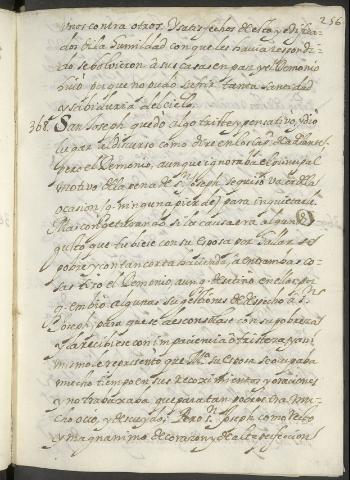 256
unos contra otros. Y satisfechos de esto, y edifica=
dos de la humildad con que les havia respondi=
do se bolvieron a sus casas en paz, y el Demonio
huió porque no pudo sufrir tanta santidad
y sabiduria del cielo.
368. San Joseph quedó algo triste, y pensativo, y dio
lugar al discurso como diré en los cap.s de adelante.
pero el Demonio, aunque ignoraba el principal
motivo de la pena de S.n Joseph se quiso valer de la
ocasion (q. ninguna pierde) para inquietarle.
Mas congeturando si la causa era algun dis=
gusto que tubiese con su Esposa por hallarse
pobre, y con tan corta hacienda, a entrambas co=
sas tiro el Demonio, aunq. desatinó en ellas; por
q. embió algunas sugestiones de despecho a S.n
Joseph, para que se desconsolase con su pobreza,
y la recibiese con impaciencia, o tristeza, y asi
mismo le representó que M.a su Esposa se ocupaba
mucho tiempo en sus recogimientos, y oraciones
y no trabaxaba, que para tan pobres era mu=
cho ocio, y descuydo. Pero S.n Joseph como recto
y magnanimo de corazon y de alta perfeccion